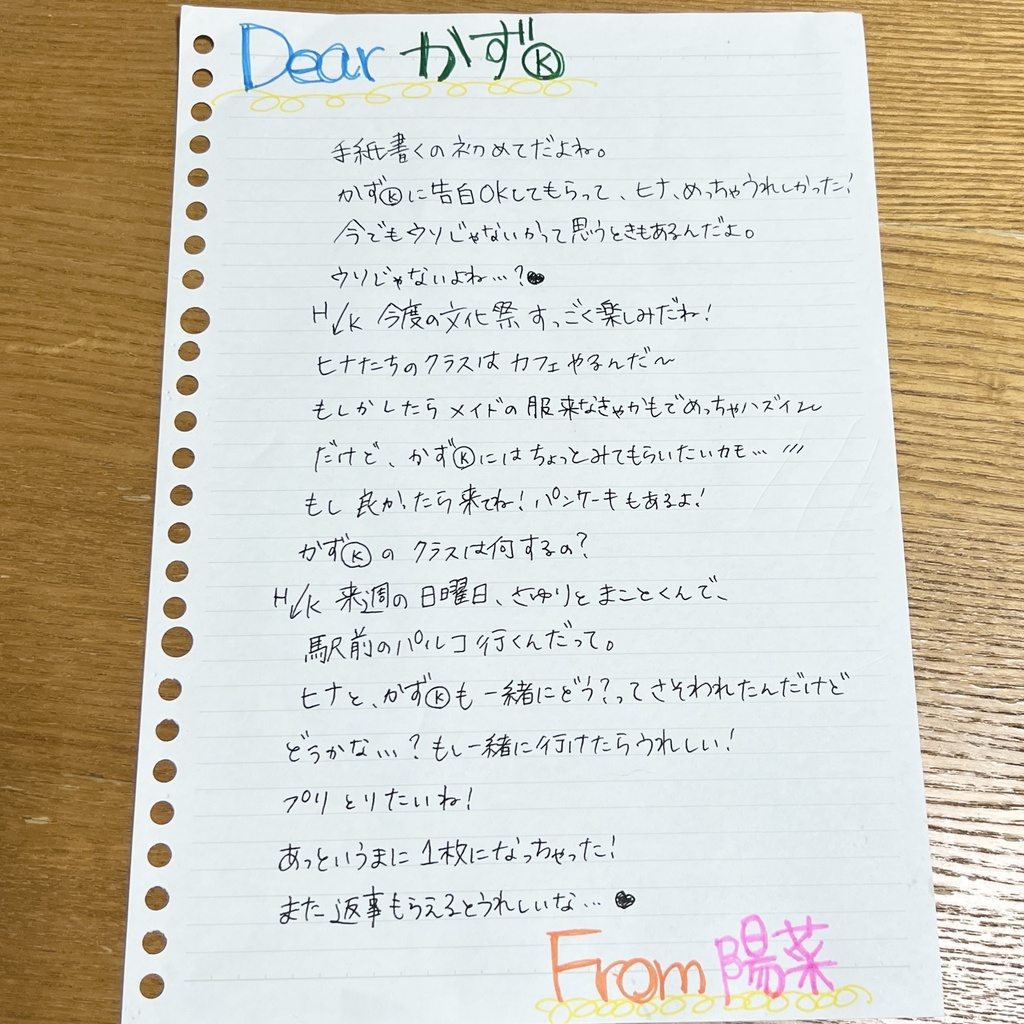 Dear かずⓀ
手紙書くの初めてだよね。
かずⓀに告白OKしてもらって、ヒナ、めっちゃうれしかった!
今でもウソじゃないかって思うときもあるんだよ。
ウソじゃないよね…?
H↙K 今度の文化祭すっごく楽しみだね!
ヒナたちのクラスはカフェやるんだ〜
もしかしたらメイドの服来なきゃかもでめっちゃハズイ〜
だけど、かずⓀにはちょっとみてもらいたいカモ… ///
もし良かったら来てね!パンケーキもあるよ!
かずⓀのクラスは何するの?
H↙K 来週の日曜日、さゆりとまことくんで、
駅前のパルコ行くんだって。
ヒナと、かずⓀも一緒にどう?ってさそわれたんだけど
どうかな…?もし一緒に行けたらうれしい!
プリとりたいね!
あっというまに1枚になっちゃった!
また返事もらえるとうれしいな…
From 陽菜